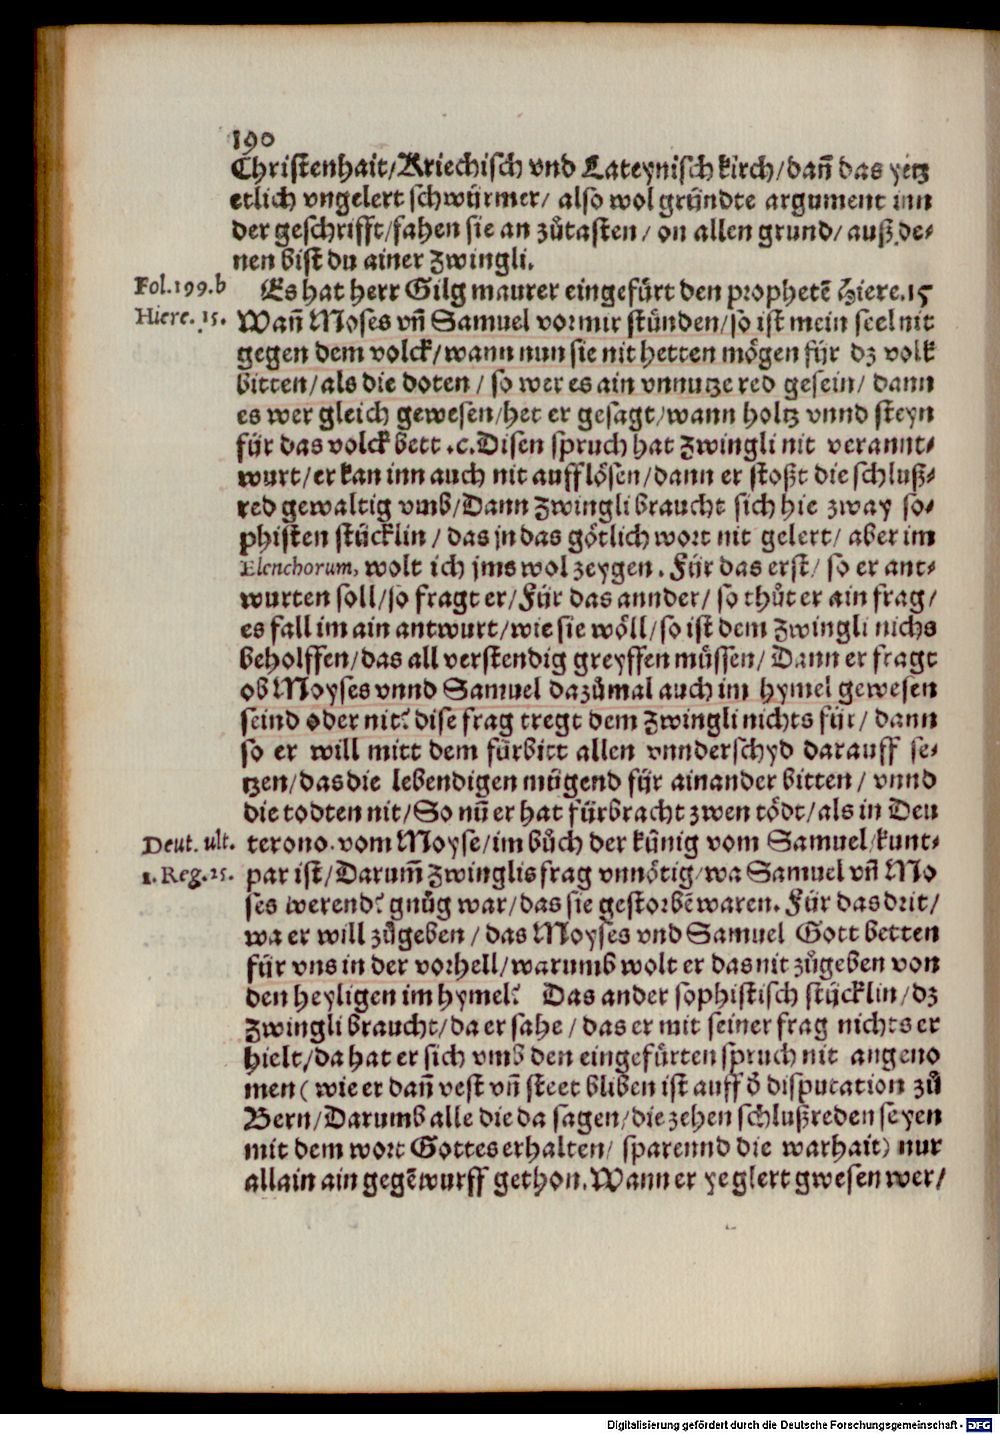 190
Christenhait/Kriechisch vnd Lateynisch kirch/dañ das yetz
etlich vngelert schwürmer/ also wol gründte argument inn
der geschrifft/fahen sie an zůtasten/ on allen grund/ auß de-
nen bist du ainer Zwingli.
Fol.199.b Es hat herr Gilg maurer eingefürt den prophetē Hiere.15
Hiere. 15. Wañ Moses vñ Samuel vor mir stünden/so ist mein seel nit
gegen dem volck/wann nun sie nit hetten mögen für dz volk
bitten/als die doten / so wer es ain vnnutze red gesein/ dann
es wer gleich gewesen/het er gesagt/wann holtz vnnd steyn
für das volck bett .c. Disen spruch hat Zwingli nit verannt-
wurt/er kan inn auch nit aufflösen/dann er stoßt die schluß-
red gewaltig vmb/Dann Zwingli braucht sich hie zway so-
phisten stücklin / das jn das götlich wort nit gelert/ aber im
Elenchorum, wolt ich jms wol zeygen. Für das erst/ so er ant-
wurten soll/so fragt er/Für das annder/ so thůt er ain frag/
es fall im ain antwurt/wie sie wöll/so ist dem Zwingli nichs
beholffen/das all verstendig greyffen müssen/ Dann er fragt
ob Moyses vnnd Samuel dazůmal auch im hymel gewesen
seind oder nit? dise frag tregt dem Zwingli nichts für/ dann
so er will mitt dem fürbitt allen vnnderschyd darauff se-
tzen/das die lebendigen mügend für ainander bitten/ vnnd
die todten nit/So nū er hat fürbracht zwen tödt/als in Deu
Deut. ult. terono. vom Moyse/im bůch der künig vom Samuel/kunt-
1. Reg.25. par ist/Darum̃ Zwinglis frag vnnötig/wa Samuel vñ Mo
ses werend? gnůg war/das sie gestorbē waren. Für das drit/
wa er will zůgeben / das Moyses vnd Samuel Gott betten
für vns in der vorhell/warumb wolt er das nit zůgeben von
den heyligen im hymel? Das ander sophistisch stücklin/dz
Zwingli braucht/da er sahe / das er mit seiner frag nichts er
hielt/da hat er sich vmb den eingefürten spruch nit angeno
men (wie er dañ vest vñ steet bliben ist auff d̄ disputation zů
Bern/Darumb alle die da sagen/die zehen schlußreden seyen
mit dem wort Gottes erhalten/ sparennd die warhait) nur
allain ain gegēwurff gethon. Wann er ye glert gwesen wer/
Digitalisierung gefördert durch die Deutsche Forschungsgemeinschaft - DFG